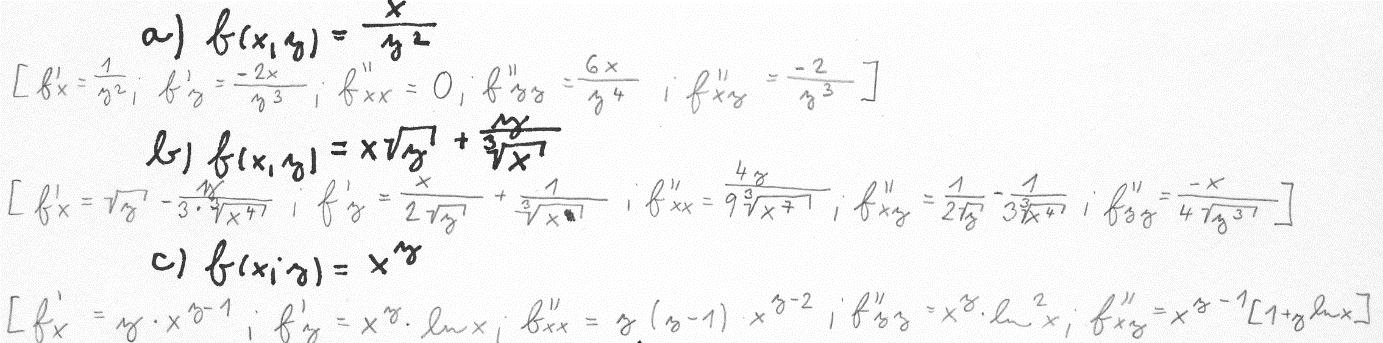 a) f(x,y) = x/y²
[f'x = 1/y²; f'y = -2x/y³; f''xx = 0; f''yy = 6x/y⁴; f''xy = -2/y³]
b) f(x,y) = x√y + y/∛x
[f'x = √y - y/(3·∛x⁴); f'y = x/(2√y) + 1/∛x; f''xx = 4y/(9∛x⁷); f''xy = 1/(2√y) - 1/(3∛x⁴); f''yy = -x/(4√y³)]
c) f(x;y) = x^y
[f'x = y·x^(y-1); f'y = x^y·ln x; f''xx = y(y-1)·x^(y-2); f''yy = x^y·ln²x; f''xy = x^(y-1)[1+y ln x]]